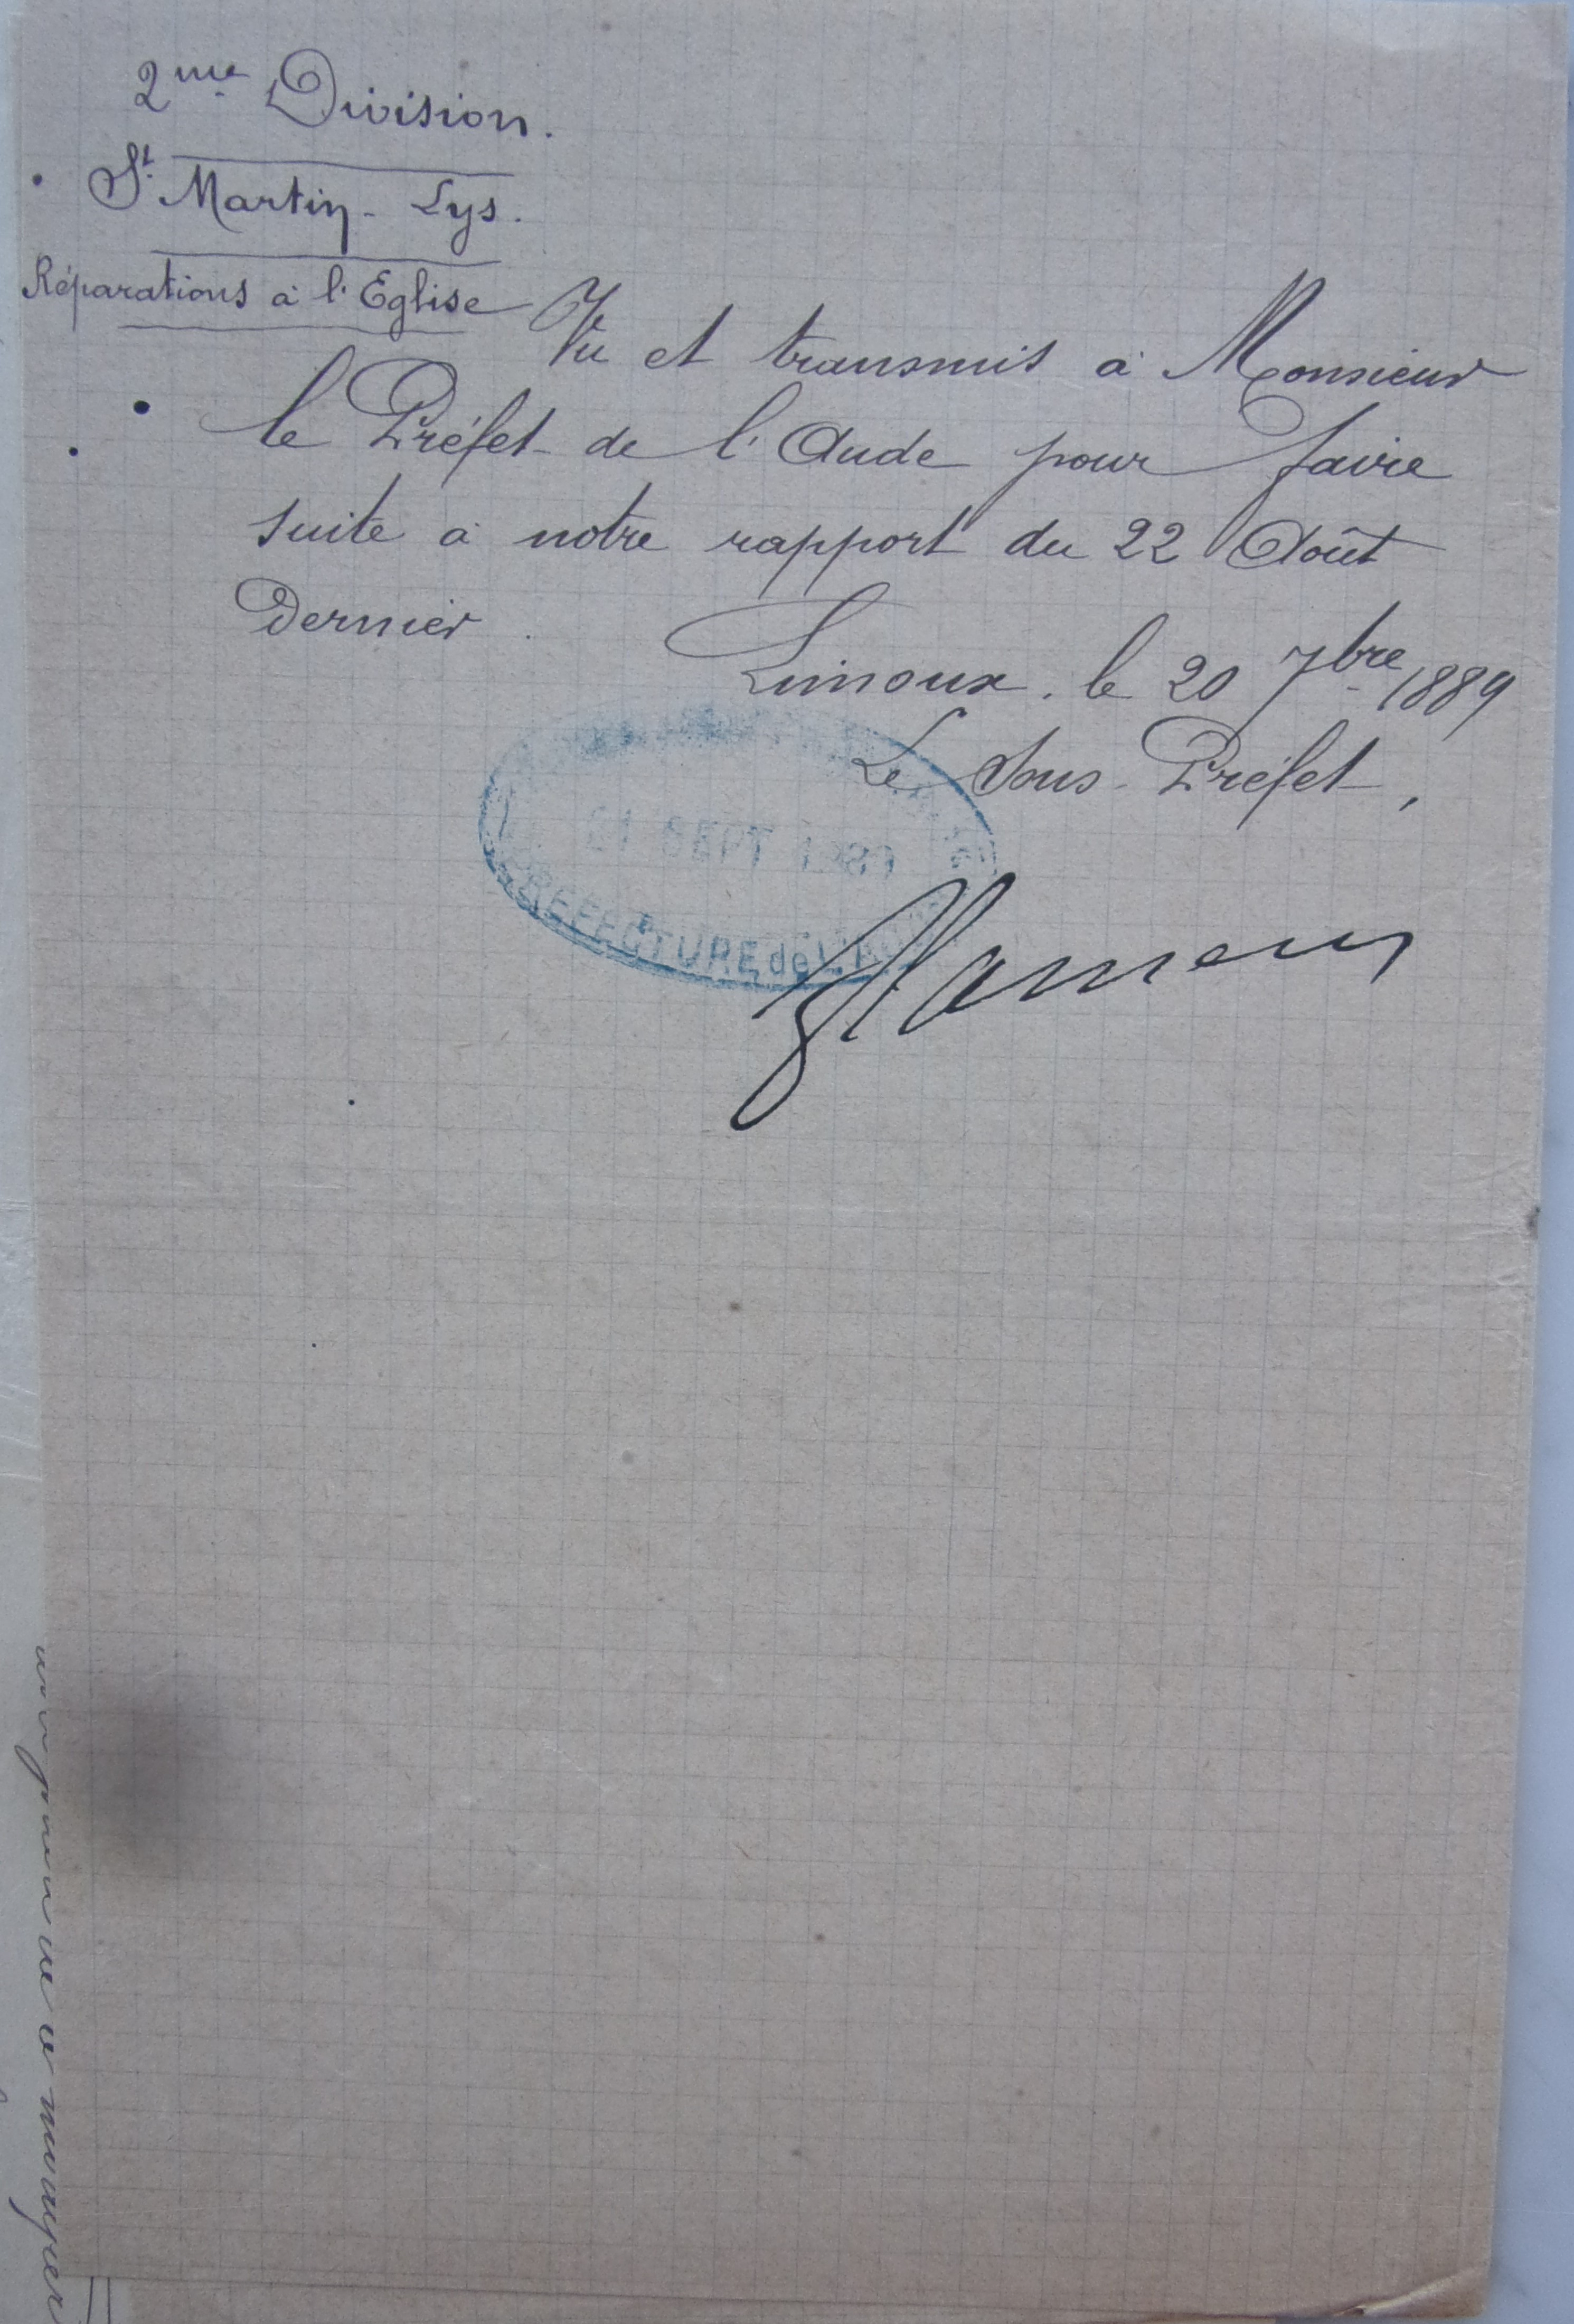 2me Division.
St Martin-Lys.
Réparations à l'Eglise
Vu et transmis à Monsieur
le Préfet de l'Aude pour faire
suite à notre rapport du 22 Août
Dernier.
Limoux, le 20 7bre 1889
Le Sous-Préfet,
21 SEPT 1889
PREFECTURE de L'AUDE